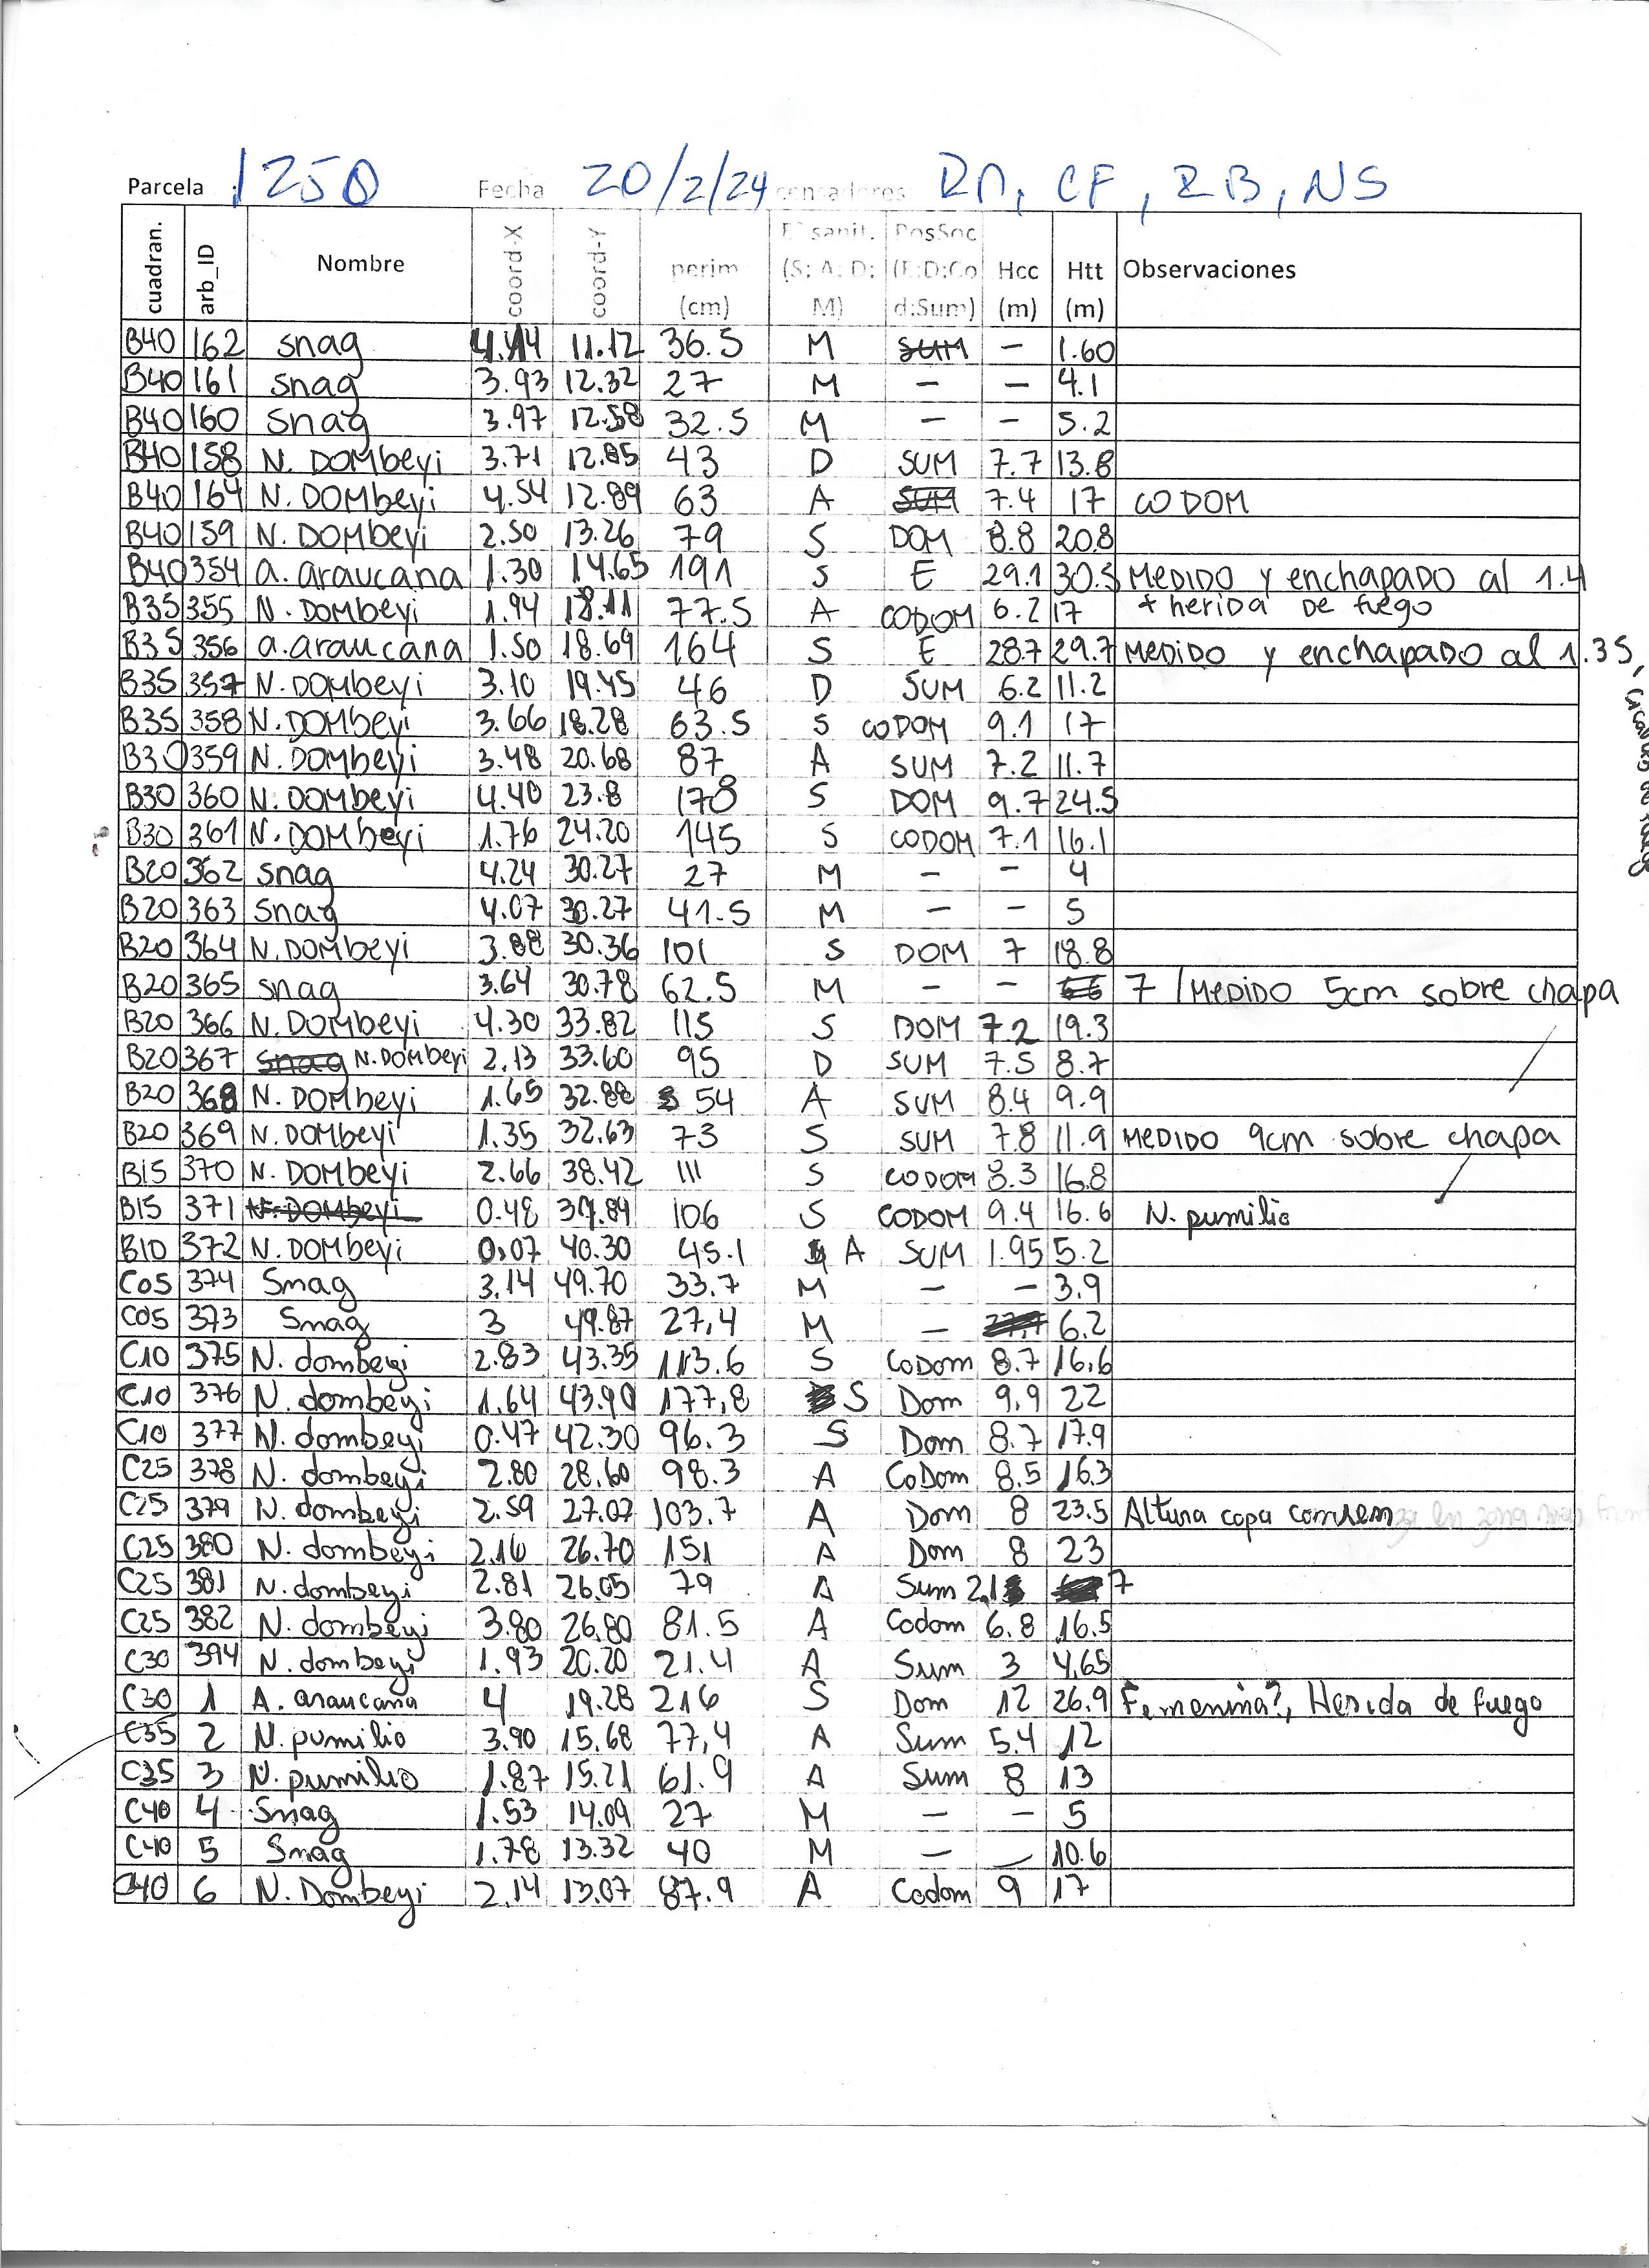 Parcela 1250 Fecha 20/2/24 censadores: RM, CF, RB, NS
cuadran. arb_ID Nombre coord-X coord-Y perim (cm) E° sanit. (S; A; D; M) PosSoc (E;D;Cod;Sum) Hcc (m) Htt (m) Observaciones
B40 162 snag 4.44 11.12 36.5 M SUM – 1.60
B40 161 snag 3.93 12.32 27 M – – 4.1
B40 160 snag 3.97 12.58 32.5 M – – 5.2
B40 158 N. DOMbeyi 3.71 12.85 43 D SUM 7.7 13.8
B40 164 N. DOMbeyi 4.54 12.89 63 A SUM 7.4 17 CODOM
B40 159 N. DOMbeyi 2.50 13.26 79 S DOM 8.8 20.8
B40 354 a. araucana 1.30 14.65 191 S E 29.1 30.5 MEDIDO y enchapado al 1.4
B35 355 N. DOMbeyi 1.94 18.11 77.5 A CODOM 6.2 17 + herida De fuego
B35 356 a. araucana 1.50 18.69 164 S E 28.7 29.7 MEDIDO y enchapado al 1.35,
B35 357 N. DOMbeyi 3.10 19.45 46 D SUM 6.2 11.2
B35 358 N. DOMbeyi 3.66 18.28 63.5 S CODOM 9.1 17
B30 359 N. DOMbeyi 3.48 20.68 87 A SUM 7.2 11.7
B30 360 N. DOMbeyi 4.40 23.8 178 S DOM 9.7 24.5
B30 361 N. DOMbeyi 1.76 24.20 145 S CODOM 7.1 16.1
B20 362 snag 4.24 30.27 27 M – – 4
B20 363 snag 4.07 30.27 41.5 M – – 5
B20 364 N. DOMbeyi 3.88 30.36 101 S DOM 7 18.8
B20 365 snag 3.64 30.78 62.5 M – – 7 / MEDIDO 5cm sobre chapa
B20 366 N. DOMbeyi 4.30 33.82 115 S DOM 7.2 19.3
B20 367 snag N. DOMbeyi 2.13 33.60 95 D SUM 7.5 8.7
B20 368 N. DOMbeyi 1.65 32.88 54 A SUM 8.4 9.9
B20 369 N. DOMbeyi 1.35 32.63 73 S SUM 7.8 11.9 MEDIDO 9cm sobre chapa
B15 370 N. DOMbeyi 2.66 38.42 111 S CODOM 8.3 16.8
B15 371 N. DOMbeyi 0.48 39.89 106 S CODOM 9.4 16.6 N. pumilio
B10 372 N. DOMbeyi 0.07 40.30 45.1 A SUM 1.95 5.2
C05 374 Snag 3.14 49.70 33.7 M – – 3.9
C05 373 Snag 3 49.87 27,4 M – 6.2
C10 375 N. dombeyi 2.83 43.35 113.6 S CoDom 8.7 16,6
C10 376 N. dombeyi 1.64 43.90 177,8 S Dom 9,9 22
C10 377 N. dombeyi 0.47 42.30 96.3 S Dom 8.7 17.9
C25 378 N. dombeyi 2.80 28.60 98.3 A CoDom 8.5 16.3
C25 379 N. dombeyi 2.59 27.07 103.7 A Dom 8 23.5 Altura copa comien
C25 380 N. dombeyi 2.16 26.70 151 A Dom 8 23
C25 381 N. dombeyi 2.81 26.05 79 A Sum 2.1 7
C25 382 N. dombeyi 3.80 26.80 81.5 A Codom 6.8 16.5
C30 394 N. dombeyi 1.93 20.20 21.4 A Sum 3 4,65
C30 1 A. araucana 4 19.28 216 S Dom 12 26.9 Femenina?, Herida de fuego
C35 2 N. pumilio 3.90 15.68 77,4 A Sum 5.4 12
C35 3 N. pumilio 1.87 15.21 61.9 A Sum 8 13
C40 4 Snag 1.53 14.09 27 M – – 5
C40 5 Snag 1.78 13.32 40 M – – 10.6
C40 6 N. Dombeyi 2.14 13.07 87.9 A Codom 9 17